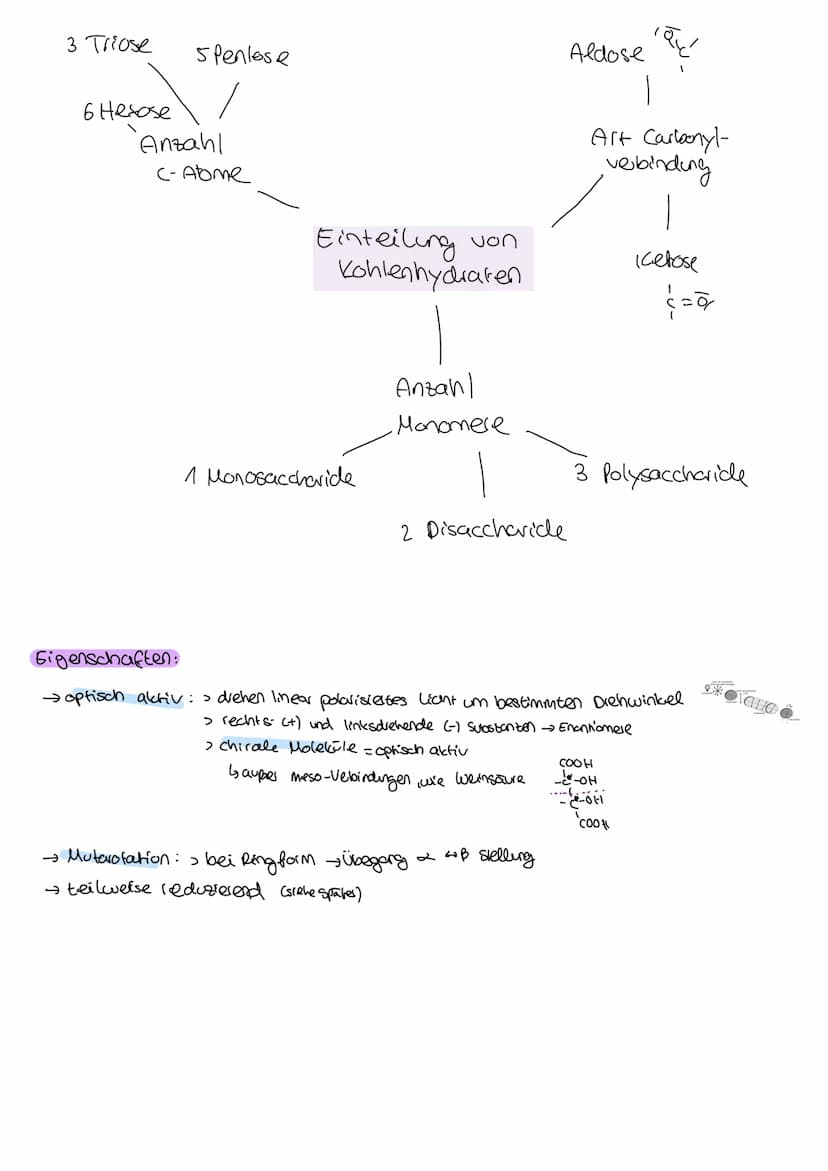 3 Triose
5 Pentose
6 Hexose
Anzahl
C-Atome
Aldose
Art Carbonyl-
verbindung
Ketose
C=O
Einteilung von
Kohlenhydraten
Anzahl
Monomere
1 Monosaccharide
2 Disaccharide
3 Polysaccharide
Eigenschaften:
→ optisch aktiv: > drehen linear polarisiertes Licht um bestimmten Drehwinkel
> rechts- (+) und linksdrehende (-) Substanzen → Enantiomere
> chirale Moleküle = optisch aktiv
↳ außer meso-Verbindungen, wie Weinsäure
COOH
-C-OH
-C-OH
COOH
→ Mutarotation: > bei Ringform → Übergang α ↔ β Stellung
→ teilweise reduzierend (siehe später)